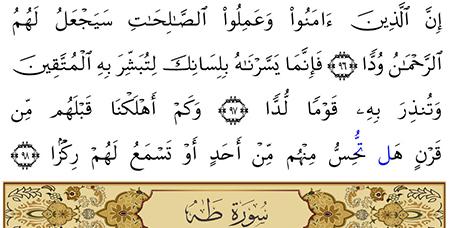 إِنَّ ٱلَّذِينَ ءَامَنُوا۟ وَعَمِلُوا۟ ٱلصَّـٰلِحَـٰتِ سَيَجْعَلُ لَهُمُ
ٱلرَّحْمَـٰنُ وُدًّا ﴿٩٦﴾ فَإِنَّمَا يَسَّرْنَـٰهُ بِلِسَانِكَ لِتُبَشِّرَ بِهِ ٱلْمُتَّقِينَ
وَتُنذِرَ بِهِۦ قَوْمًا لُّدًّا ﴿٩٧﴾ وَكَمْ أَهْلَكْنَا قَبْلَهُم مِّن
قَرْنٍ هَلْ تُحِسُّ مِنْهُم مِّنْ أَحَدٍ أَوْ تَسْمَعُ لَهُمْ رِكْزًۢا ﴿٩٨﴾
سُورَةُ طه